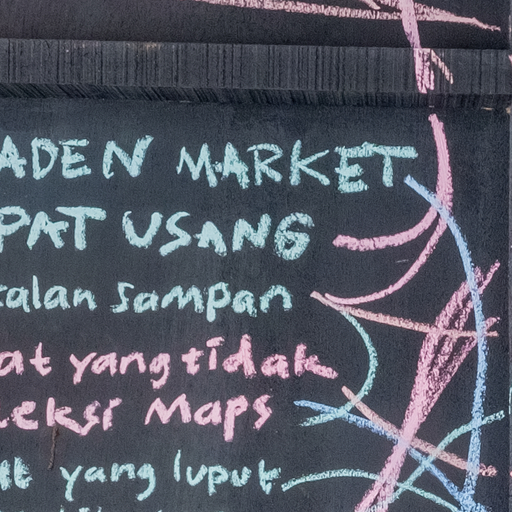 ADEN MARKET
PAT USANG
alan sampan
at yang tidak
eksi Maps
yang luput